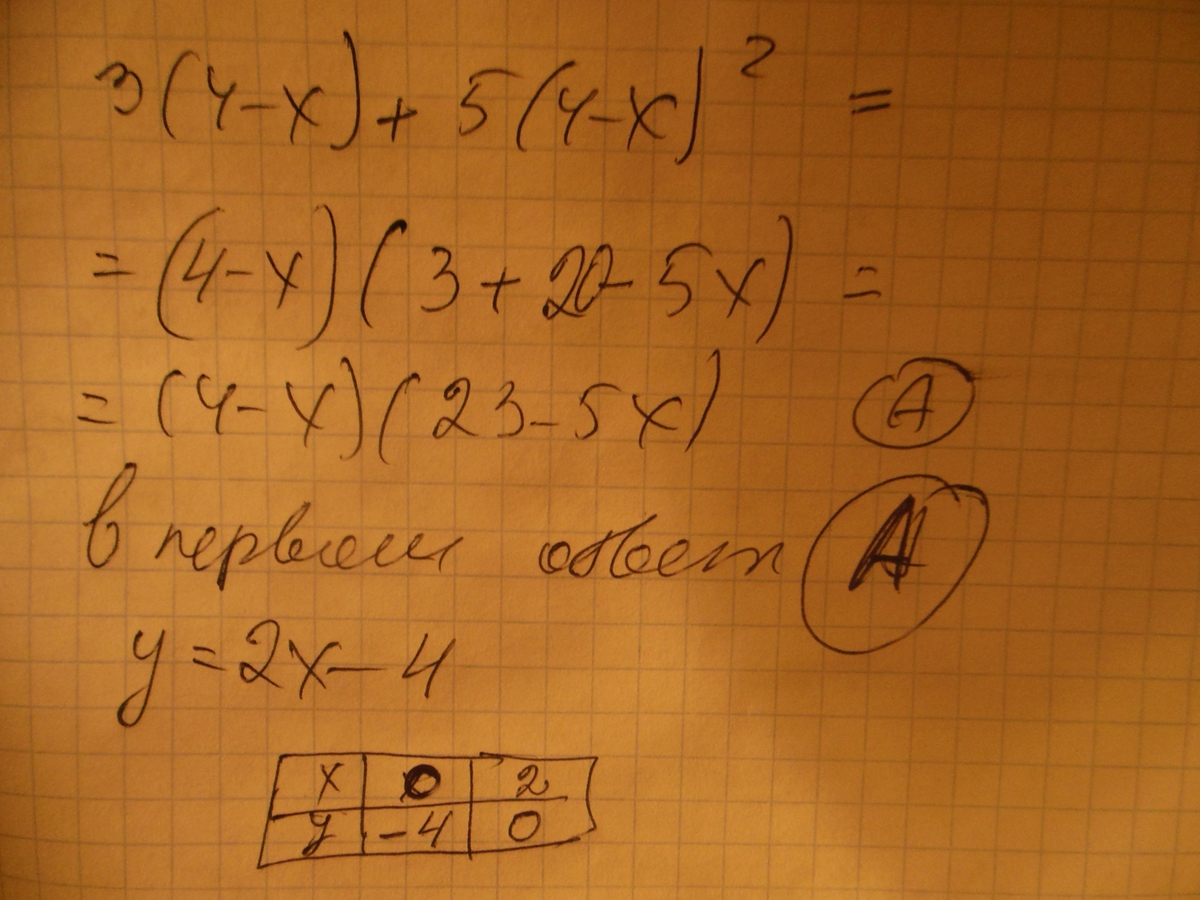 3(4-x)+5(4-x)²=
=(4-x)(3+20-5x)=
=(4-x)(23-5x) A
в первом ответ A
y=2x-4
x 0 2
y -4 0